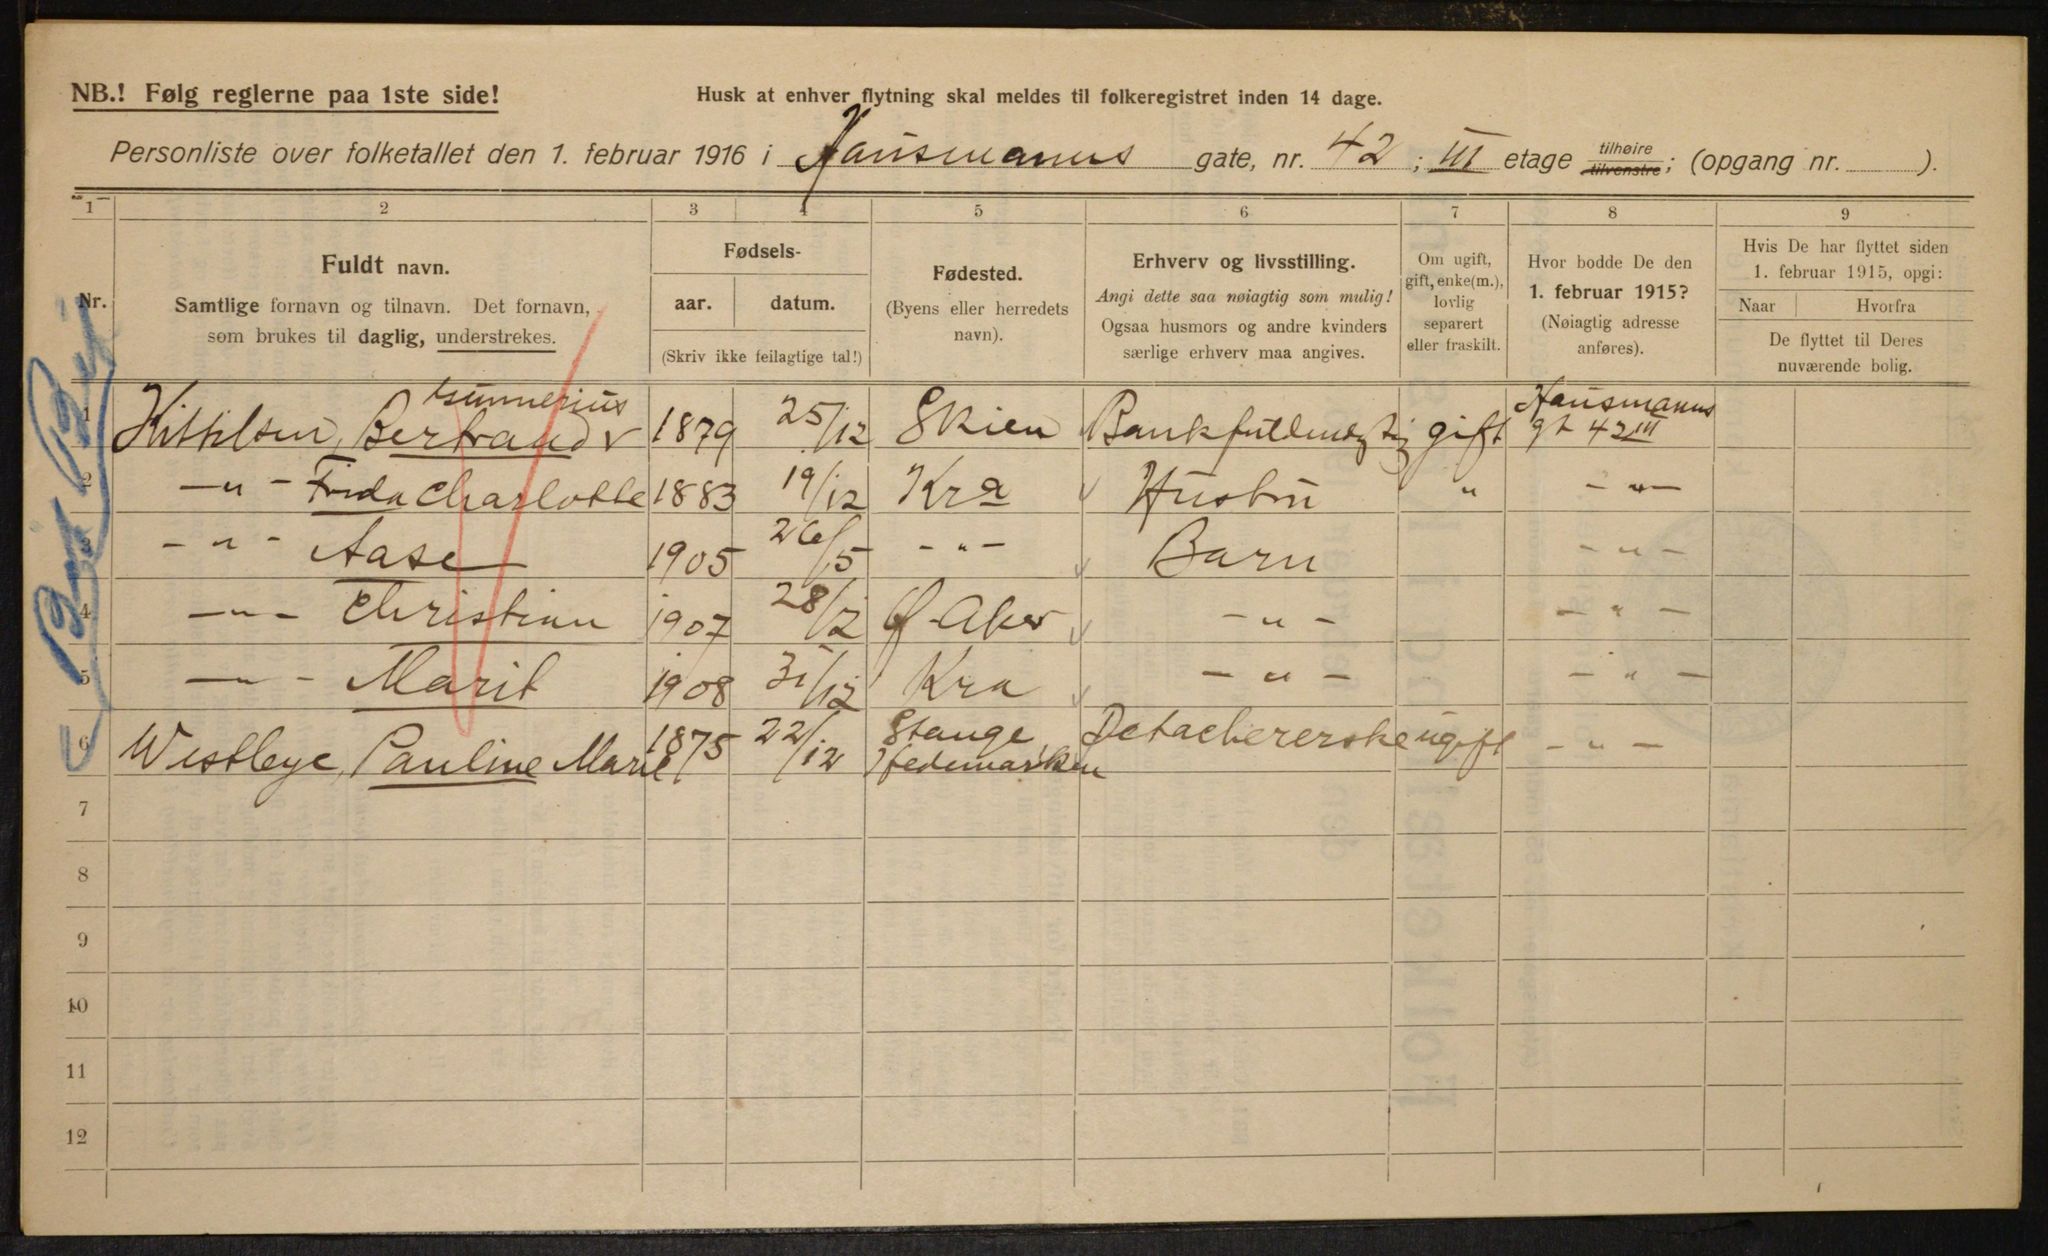 NB.! Følg reglerne paa 1ste side!
Husk at enhver flytning skal meldes til folkeregistret inden 14 dage.
Personliste over folketallet den 1. februar 1916 i Hausmanns gate, nr. 42; III etage tilhøire tilvenstre; (opgang nr. ).
1 2 3 4 5 6 7 8 9
Nr.
Fuldt navn.
Samtlige fornavn og tilnavn. Det fornavn,
som brukes til daglig, understrekes.
Fødsels-
aar. datum.
(Skriv ikke feilagtige tal!)
Fødested.
(Byens eller herredets
navn).
Erhverv og livsstilling.
Angi dette saa nøiagtig som mulig!
Ogsaa husmors og andre kvinders
særlige erhverv maa angives.
Om ugift,
gift, enke(m.),
lovlig
separert
eller fraskilt.
Hvor bodde De den
1. februar 1915?
(Nøiagtig adresse
anføres).
Hvis De har flyttet siden
1. februar 1915, opgi:
Naar Hvorfra
De flyttet til Deres
nuværende bolig.
1 Kittilsen, Bertrand Gunnerius 1879 25/12 Skien Bankfuldmægtig gift Hausmanns gt 42 III
2 -"- Frida Charlotte 1883 19/12 Kra Hustru " -"-
3 -"- Aase 1905 26/5 -"- Barn -"-
4 -"- Christian 1907 28/2 V-Aker -"- -"-
5 -"- Marit 1908 31/12 Kra -"- -"-
6 Westbye, Pauline Marie 1875 22/12 Stange Hedemarken Detachererske ugift -"-
7
8
9
10
11
12